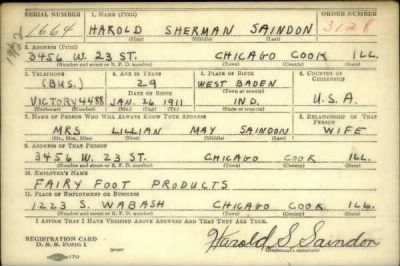 SERIAL NUMBER 1. NAME (Print) ORDER NUMBER
1664 HAROLD SHERMAN SAINDON 3128
(First) (Middle) (Last)
2. ADDRESS (Print)
3456 W. 23 ST. CHICAGO COOK ILL.
(Number and street or R. F. D. number) (Town) (County) (State)
3. TELEPHONE 4. AGE IN YEARS 5. PLACE OF BIRTH 6. COUNTRY OF CITIZENSHIP
(BUS.) 29 WEST BADEN
DATE OF BIRTH (Town or county)
VICTORY 4488 JAN. 26 1911 IND. U.S.A.
(Exchange) (Number) (Mo.) (Day) (Yr.) (State or country)
7. NAME OF PERSON WHO WILL ALWAYS KNOW YOUR ADDRESS 8. RELATIONSHIP OF THAT PERSON
MRS LILLIAN MAY SAINDON WIFE
(Mr., Mrs., Miss) (First) (Middle) (Last)
9. ADDRESS OF THAT PERSON
3456 W. 23 ST. CHICAGO COOK ILL.
(Number and street or R. F. D. number) (Town) (County) (State)
10. EMPLOYER'S NAME
FAIRY FOOT PRODUCTS
11. PLACE OF EMPLOYMENT OR BUSINESS
1223 S. WABASH CHICAGO COOK ILL.
(Number and street or R. F. D. number) (Town) (County) (State)
I AFFIRM THAT I HAVE VERIFIED ABOVE ANSWERS AND THAT THEY ARE TRUE.
REGISTRATION CARD
D. S. S. Form 1 (over) Harold S. Saindon